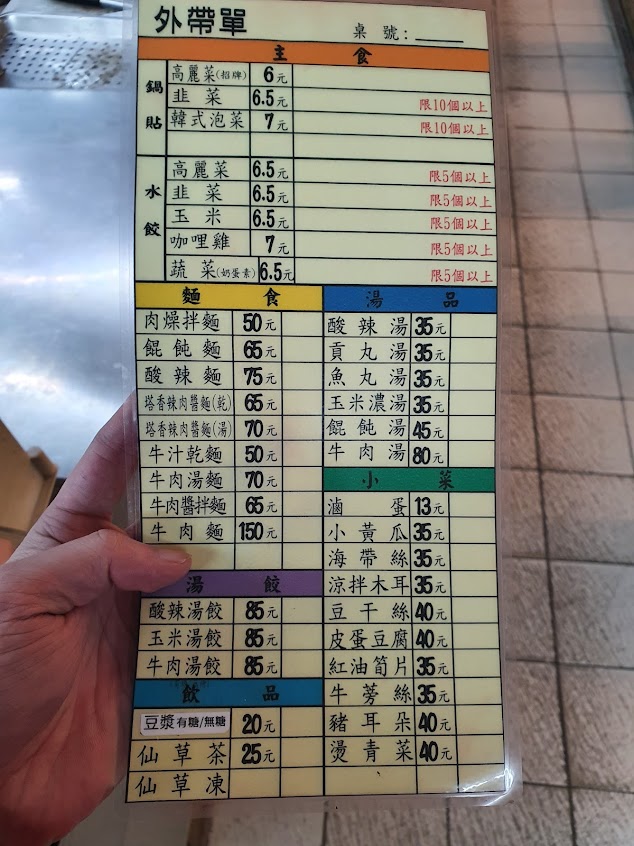 外帶單 桌號:
主食
鍋貼
高麗菜(招牌) 6元
韭菜 6.5元 限10個以上
韓式泡菜 7元 限10個以上
水餃
高麗菜 6.5元 限5個以上
韭菜 6.5元 限5個以上
玉米 6.5元 限5個以上
咖哩雞 7元 限5個以上
蔬菜(奶蛋素) 6.5元 限5個以上
麵食
肉燥拌麵 50元
餛飩麵 65元
酸辣麵 75元
塔香辣肉醬麵(乾) 65元
塔香辣肉醬麵(湯) 70元
牛汁乾麵 50元
牛肉湯麵 70元
牛肉醬拌麵 65元
牛肉麵 150元
湯餃
酸辣湯餃 85元
玉米湯餃 85元
牛肉湯餃 85元
飲品
豆漿 有糖/無糖 20元
仙草茶 25元
仙草凍
湯品
酸辣湯 35元
貢丸湯 35元
魚丸湯 35元
玉米濃湯 35元
餛飩湯 45元
牛肉湯 80元
小菜
滷蛋 13元
小黃瓜 35元
海帶絲 35元
涼拌木耳 35元
豆干絲 40元
皮蛋豆腐 40元
紅油筍片 35元
牛蒡絲 35元
豬耳朵 40元
燙青菜 40元